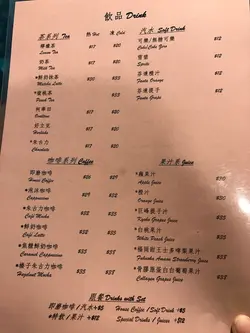 飲品 Drink
茶系列 Tea 熱 Hot 凍 Cold
檸檬茶 $17 $20
Lemon Tea
奶茶 $17 $20
Milk Tea
*鮮奶抹茶 $30 $35
Matcha Latte
*蜜桃茶 $30
Peach Tea
阿華田 $17 $20
Ovaltine
好立克 $17 $20
Horlicks
*朱古力 $31 $35
Chocolate
汽水 Soft Drink
可樂/無糖可樂 $12
Coke/Coke Zero
雪碧 $12
Sprite
芬達橙汁 $12
Fanta Orange
芬達提子 $12
Fanta Grape
咖啡系列 Coffee
即磨咖啡 $26
House Coffee
*泡沫咖啡 $35
Cappuccino
*朱古力咖啡
Café Mocha
*鮮奶咖啡
Café Latte
*焦糖鮮奶咖啡
Caramel Cappuccino
*榛子朱古力咖啡
Hazelnut Mocha
果汁系 Juice
*蘋果汁
Apple Juice
*橙汁
Orange Juice
*巨峰提子汁
Kyoho Grapes Juice
*白桃果汁
White Peach Juice
*福岡甜王士多啤梨果汁
Fukuoka Amaou Strawberry Juice
*骨膠原蛋白白葡萄果汁
Collagen Grapes Juice
跟餐 Drinks with Set
即磨咖啡/汽水+$5 House Coffee/Soft Drink +$5
*特飲/果汁 +$12 Special Drinks/Juices +$12